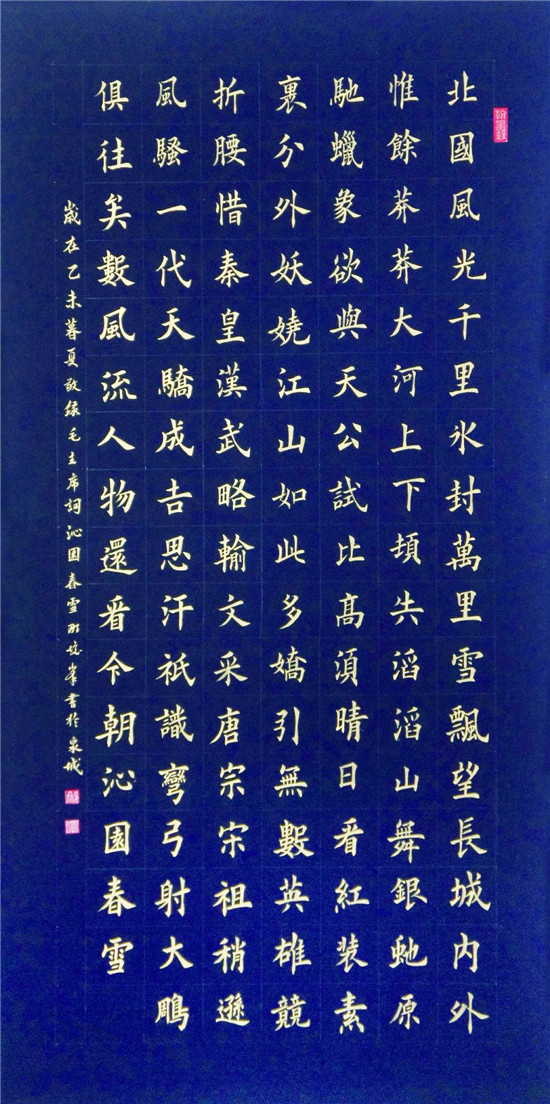 北國風光千里氷封萬里雪飄望長城内外
惟餘莽莽大河上下頓失滔滔山舞銀虵原
馳蠟象欲與天公試比高須晴日看紅装素
裹分外妖嬈江山如此多嬌引無數英雄競
折腰惜秦皇漢武略輸文采唐宗宋祖稍遜
風騷一代天驕成吉思汗祇識彎弓射大鵰
俱往矣數風流人物還看今朝沁園春雪
歲在乙未暮夏敬録毛主席詞沁园春雪峯書於泉城